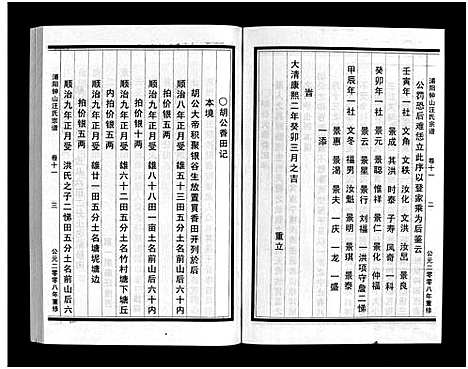 浦阳钟山汪氏宗谱 卷十一 二 公元二零零八年重修
公罚恐后难恁立此序以登家乘为后鉴云
壬寅年一社 文角 文秩 汝化 文洪 汝吕 景良
景成 其洪 时泰 子寿 凤奇 一科
癸卯年一社 景元 景聪 惟祥 景仁 景化 仲福
景云 景星 景行 景之 一源 项守詹二悌
甲辰年一社 文冬 福男 汝魁 景琪 景泰
景惠 景濁 景夫 一庆 一龙 一盛
一添
旹
大清康熙二年癸卯三月之吉 重立
浦阳钟山汪氏宗谱 卷十一 三 公元二零零八年重修
〇胡公香田记
本境
胡公大帝积聚银谷生放置買香田开列於后
顺治八年正月受 雄八十八田一亩土名前山后六十内
拍价银十两
顺治九年正月受 雄六十二田五分土名竹村塘下塘丘
内拍价银五两
顺治九年正月受 雄廿二田五分土名塘坭塘边
拍价银五两
顺治九年正月受 洪氏之子二悌田五分土名前山后六